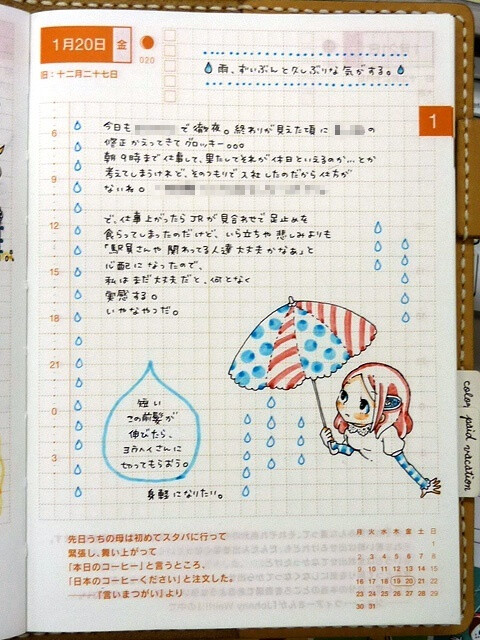 1月20日 金
020
旧:十二月二十七日
雨、ずいぶんと久しぶりな気がする。
1
今日も で徹夜。終わりが見えた頃に の
修正かえってきてグロッキー。。。
朝9時まで仕事して、果たしてそれが休日といえるのか…とか
考えてしまうけれど、そのつもりで入社したのだから仕方が
ないね。
で、仕事上がったらJRが見合わせで足止めを
食らってしまったのだけど、いら立ちや悲しみよりも
「駅員さんや関わってる人達大丈夫かなあ」と
心配になったので、
私はまだ大丈夫だと、何となく
実感する。
いやなやつだ。
6
9
12
15
18
21
0
3
短い
この前髪が
伸びたら、
ヨウヘイさんに
切ってもらおう。
身軽になりたい。
color paid vacation
先日うちの母は初めてスタバに行って
緊張し、舞い上がって
「本日のコーヒー」と言うところ、
「日本のコーヒーください」と注文した。
──「言いまつがい」より
月 火 水 木 金 土 日
1
2 3 4 5 6 7 8
9 10 11 12 13 14 15
16 17 18 19 20 21 22
23 24 25 26 27 28 29
30 31